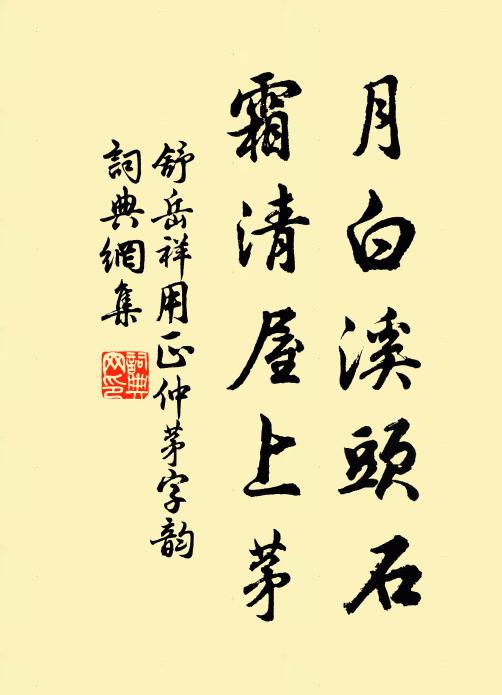 月白溪頭石
霜清屋上茅
舒岳祥用正仲茅字韵
詞典網集
詞典网印